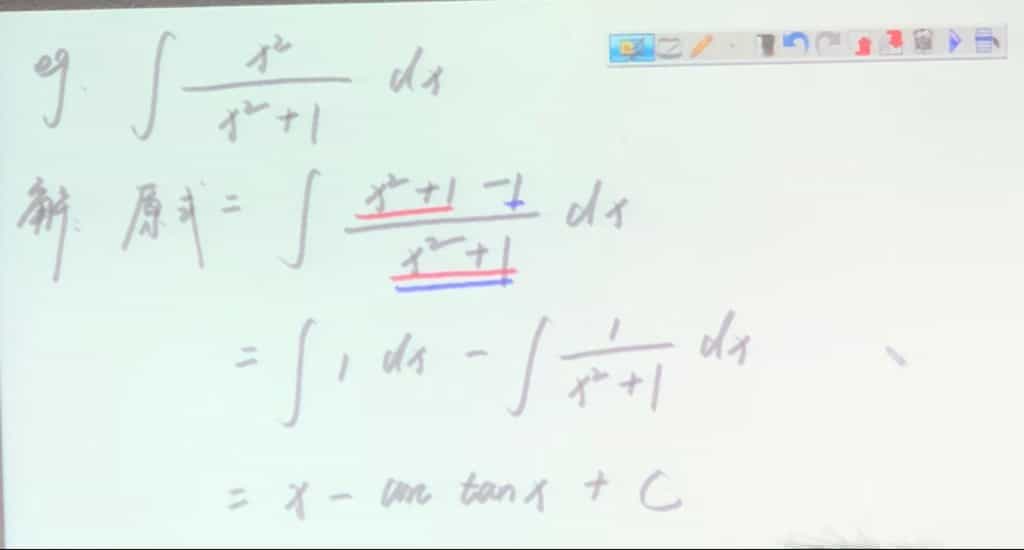 eg. ∫ x²/(x²+1) dx
解: 原式 = ∫ (x²+1-1)/(x²+1) dx
= ∫ 1 dx - ∫ 1/(x²+1) dx
= x - arc tan x + C